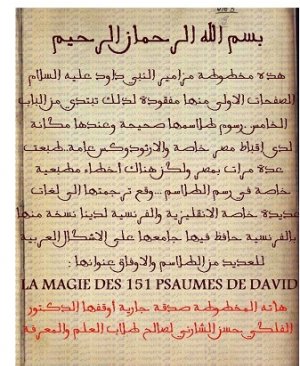 بسم الله الرحمان الرحيم
هذه مخطوطة مزامير النبي داود عليه السلام
الصفحات الاولى منها مفقودة لذلك تبتدي من الباب
الخامس رسوم طلاسمها صحيحة وعندها مكانة
لدى اقباط مصر خاصة والارثودوكس عامة. طبعت
عدة مرات بمصر ولكن هناك أخطاء مطبعية
خاصة في رسم الطلاسم ... وقع ترجمتها الى لغات
عديدة خاصة الانقليزية والفرنسية لدينا نسخة منها
بالفرنسية حافظ فيها جامعها على الاشكال العربية
للعديد من الطلاسم والاوفاق عنوانها :
LA MAGIE DES 151 PSAUMES DE DAVID
هاته المخطوطة صدقة جارية أوقفها الدكتور
الفلكي حسن الشارني لصالح طلاب العلم والمعرفة